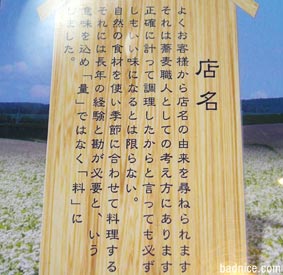 店名
よくお客様から店名の由来を尋ねられます
それは蕎麦職人としての考え方にあります
正確に計って調理したからと言っても必ず
しもいい味になるとは限らない。
自然の食材を使い季節に合わせて料理する
それには長年の経験と勘が必要と、いう
意味を込め「量」ではなく「料」に
しました。
badnice.com